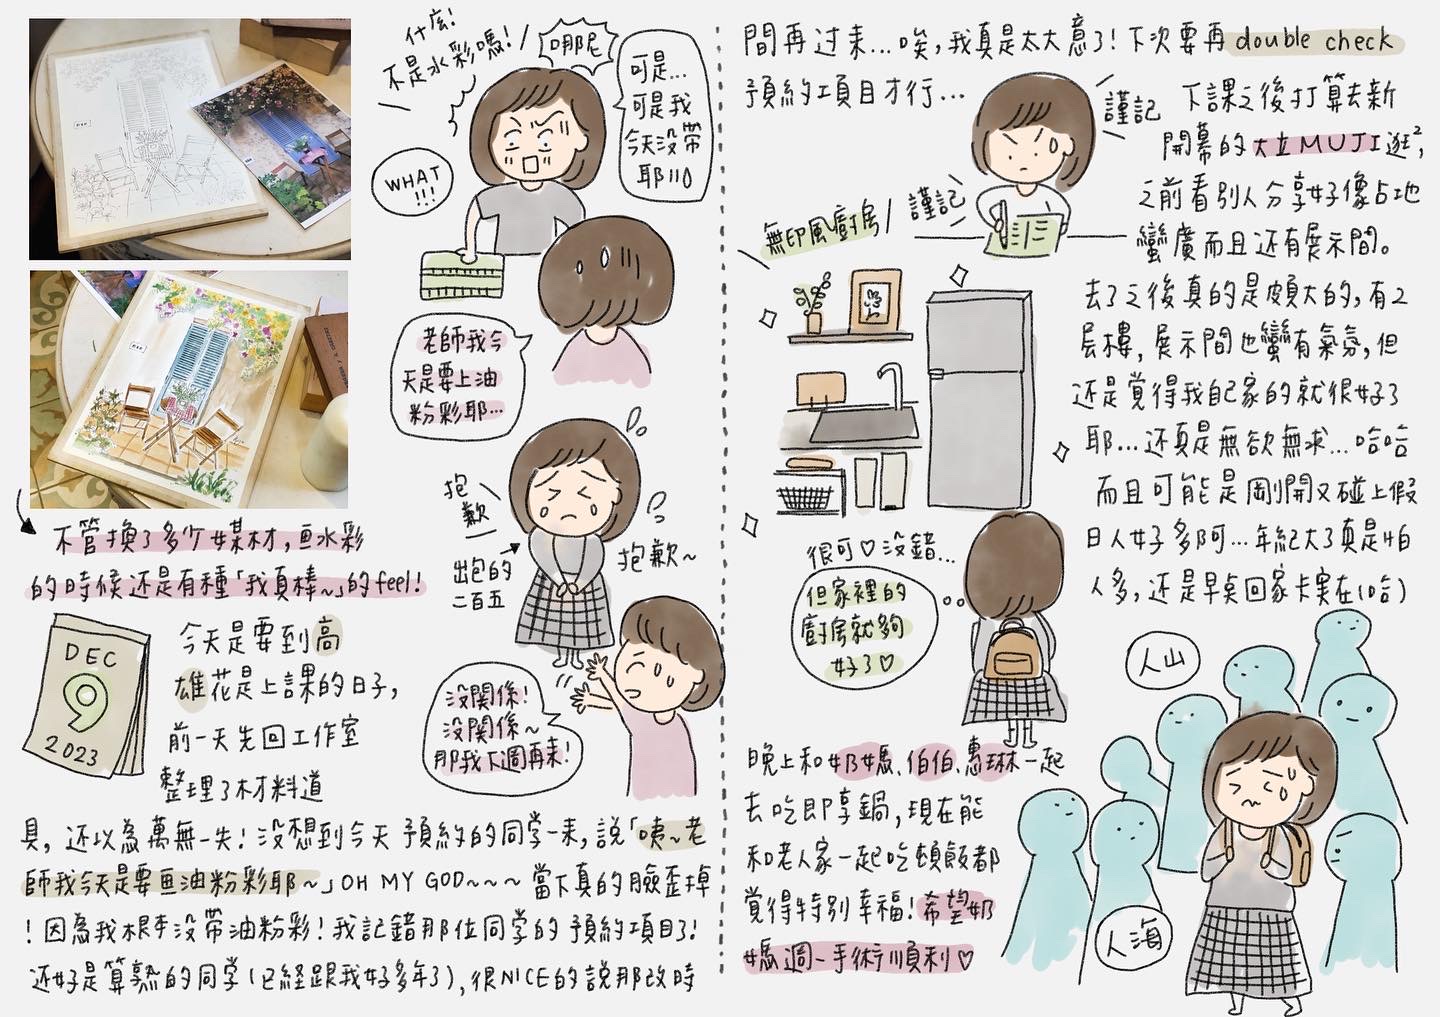 什広!
不是水彩嗎!
哪尼
可是...
可是我
今天沒帶
耶
WHAT
!!!
老師我今
天是要上油
粉彩耶...
抱
歉
出包的
二百五
抱歉~
沒關係!
沒關係~
那我下週再來!
不管換了多少媒材,画水彩
的時候还是有種「我真棒~」的feel!
DEC
9
2023
今天是要到高
雄花是上課的日子,
前一天先回工作室
整理了材料道
具,还以為萬無一失!沒想到今天預約的同學一來,説「咦~老
師我今天是要画油粉彩耶~」OH MY GOD~~~當下真的臉歪掉
!因為我根本沒帶油粉彩!我記錯那位同學的預約項目了!
还好是算熟的同學(已經跟我好多年了),很NICE的説那改時
間再过來...唉,我真是太大意了!下次要再double check
預約項目才行...
謹記
謹記
下課之後打算去新
開幕的大立MUJI逛²,
之前看別人分享好像占地
蠻廣而且还有展示間。
無印風廚房
去了之後真的是頗大的,有2
层樓,展示間也蠻有氣氛,但
还是覚得我自己家的就很好了
耶...还真是無欲無求...哈哈
而且可能是剛開又碰上假
日人好多阿...年紀大了真是怕
人多,还是早点回家卡実在(哈)
很可♡沒錯...
但家裡的
廚房就夠
好了♡
人山
人海
晚上和奶媽、伯伯、惠琳一起
去吃即享鍋,現在能
和老人家一起吃頓飯都
覚得特別幸福!希望奶
媽週一手術順利♡